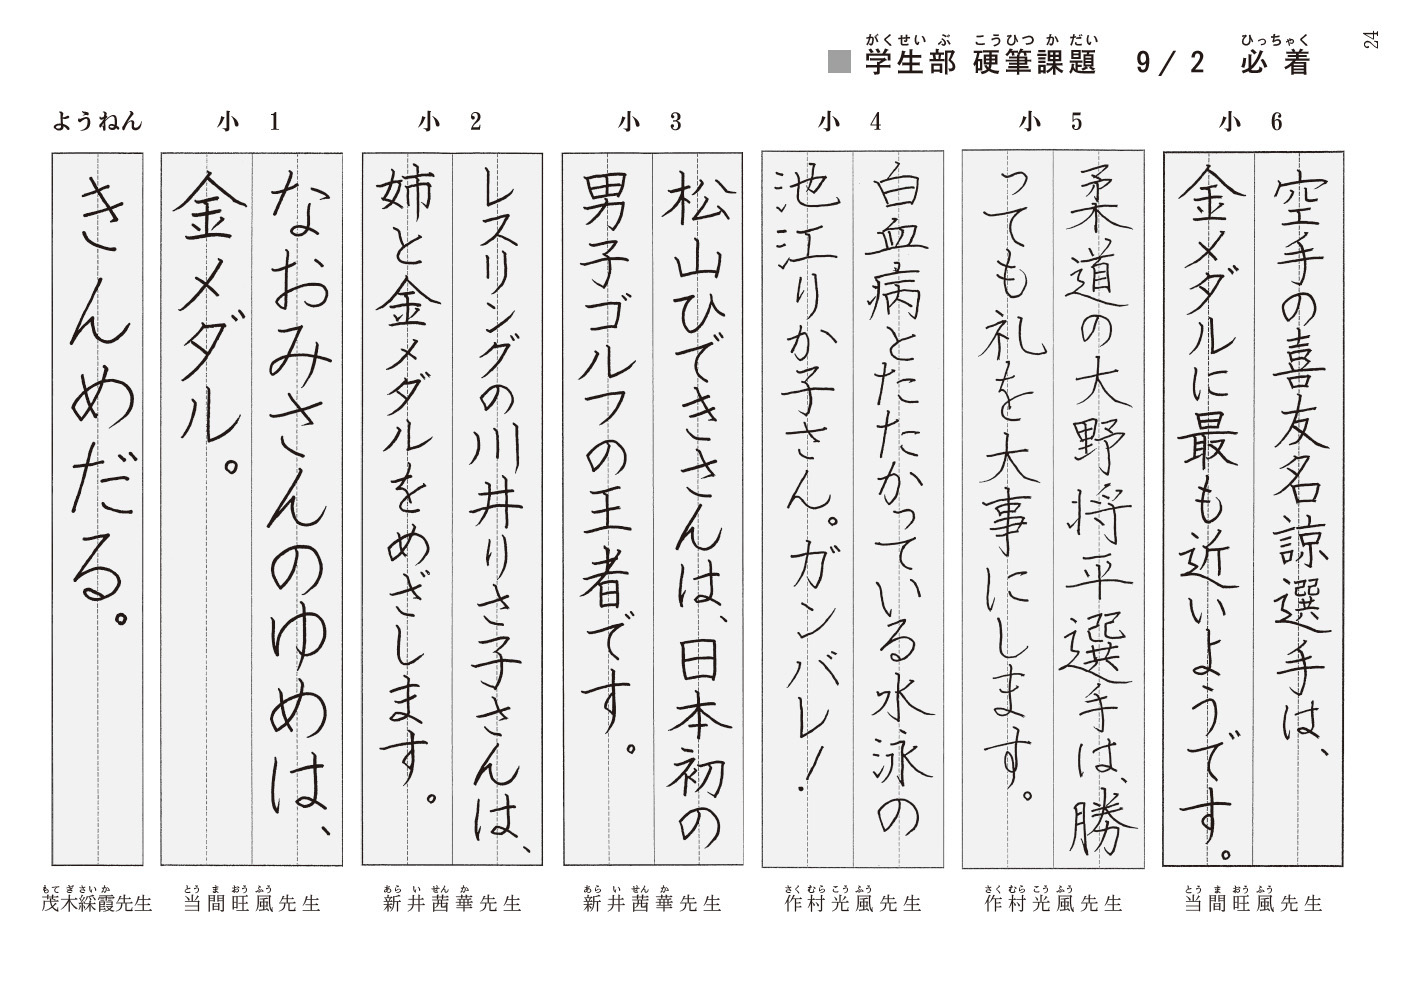 24
■学生部 硬筆課題 9/2 必着
がくせいぶ こうひつかだい ひっちゃく
小 6
空手の喜友名諒選手は、
金メダルに最も近いようです。
当間旺風先生
とうまおうふう
小 5
柔道の大野将平選手は、勝
っても礼を大事にします。
作村光風先生
さくむらこうふう
小 4
白血病とたたかっている水泳の
池江りか子さん。ガンバレ!
作村光風先生
さくむらこうふう
小 3
松山ひできさんは、日本初の
男子ゴルフの王者です。
新井茜華先生
あらいせんか
小 2
レスリングの川井りさ子さんは、
姉と金メダルをめざします。
新井茜華先生
あらいせんか
小 1
なおみさんのゆめは、
金メダル。
当間旺風先生
とうまおうふう
ようねん
きんめだる。
茂木綵霞先生
もてぎさいか